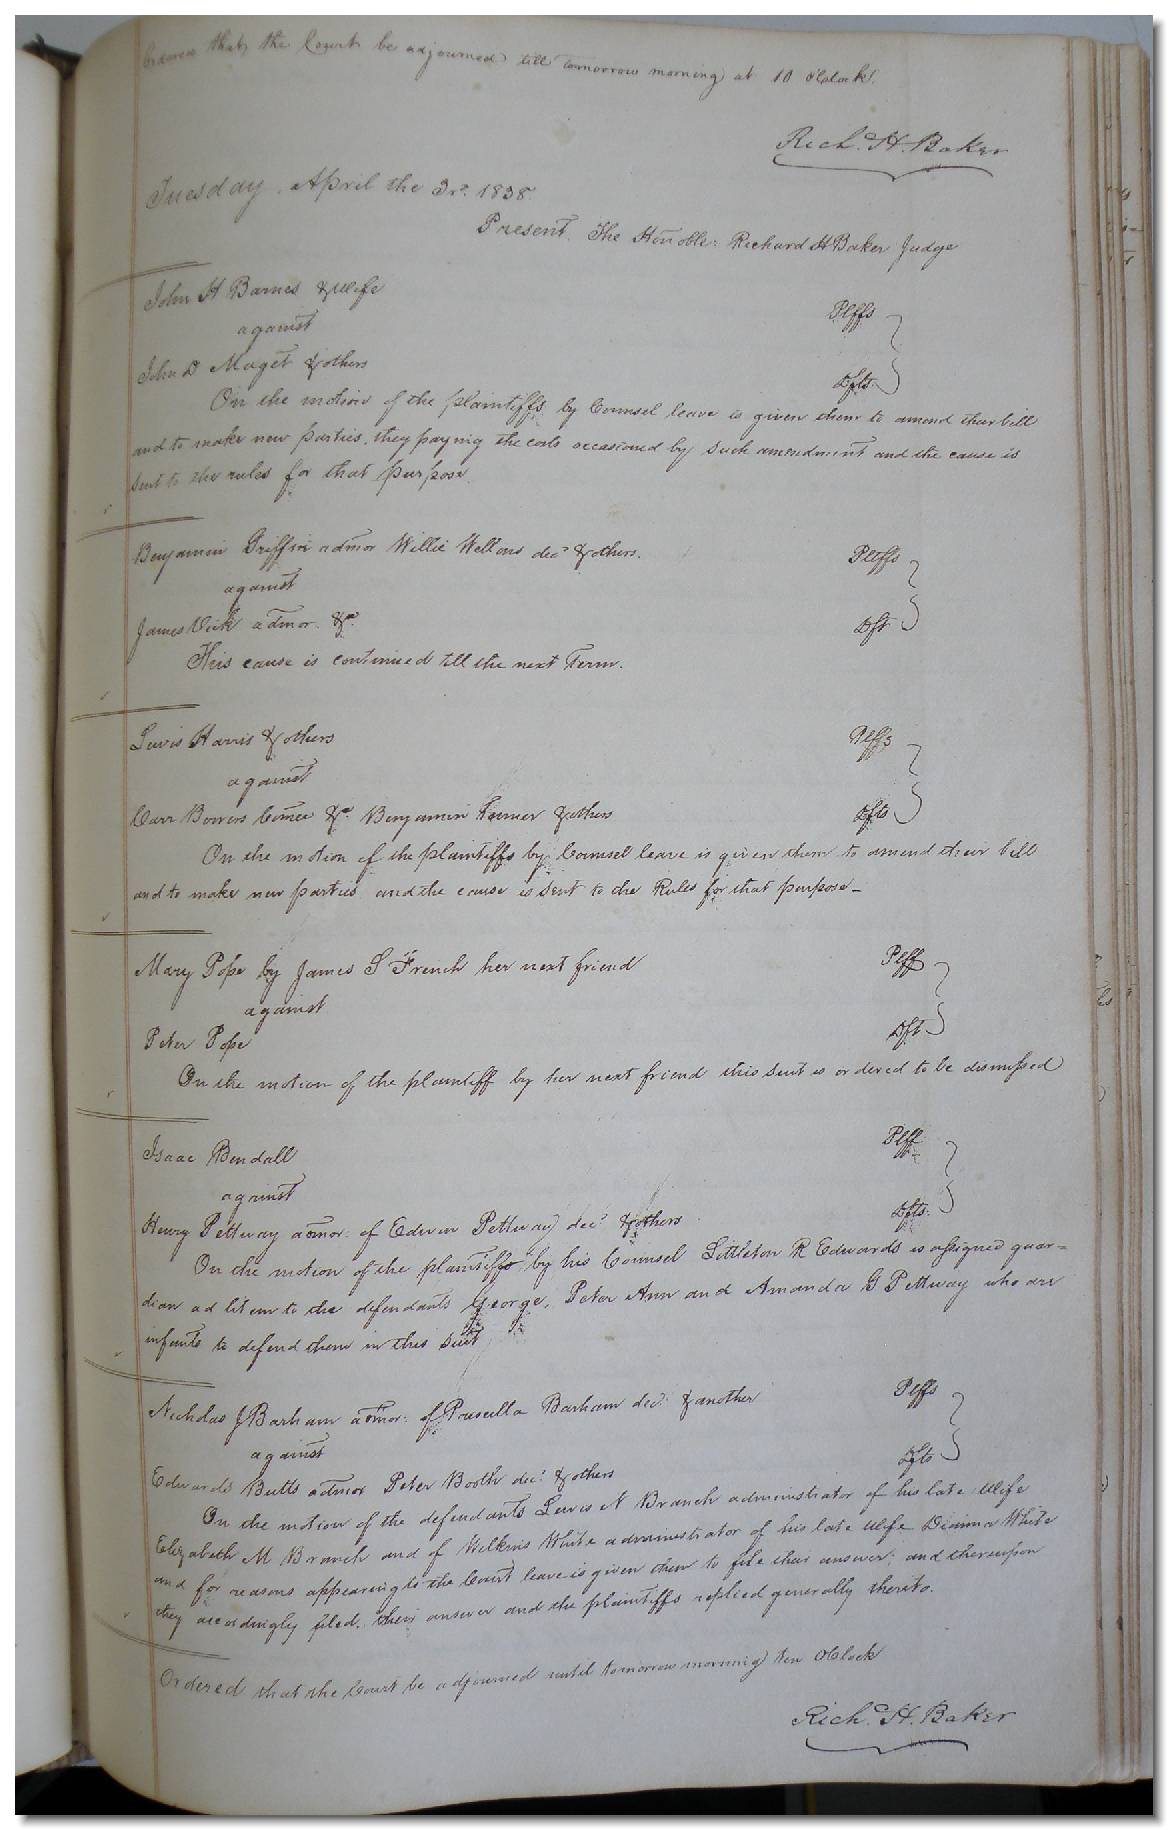 Ordered that the Court be adjourned till tomorrow morning at 10 O'Clock.
Rich.d H. Baker
Tuesday, April the 3rd. 1838.
Present. The Honoble: Richard H Baker Judge
John H Barnes & Wife Plffs
against
John D Maget & others Dfts.
On the motion of the plaintiffs by Counsel leave is given them to amend their bill
and to make new parties, they paying the costs occasioned by such amendment and the cause is
sent to the rules for that purpose.
Benjamin Griffin admor Willie Wellons decd & others. Pltffs
against
James Vick admor. &c. Dft
This cause is continued till the next Term.
Lewis Harris & others Plffs
against
Carr Bowers Comee &c. Benjamin Turner & others Dfts
On the motion of the plaintiffs by Counsel leave is given them to amend their bill
and to make new parties and the cause is sent to the Rules for that purpose_
Mary Pope by James S French her next friend Plff
against
Peter Pope Dft
On the motion of the plaintiff by her next friend this suit is ordered to be dismissed
Isaac Bendall Plff
against
Henry Pettway admor: of Edwin Pettway decd & others Dfts.
On the motion of the plaintiffs by his Counsel Littleton R Edwards is assigned guar=
dian ad litem to the defendants George, Peter Ann and Amanda G Pettway who are
infants to defend them in this suit
Nicholas J Barham admor: of Priscilla Barham decd: & another Plffs
against
Edwards Butts admor Peter Booth decd: & others Dfts
On the motion of the defendants Lewis N Branch administrator of his late Wife
Elizabeth M Branch and of Wilkins White administrator of his late Wife Dianna White
and for reasons appearing to the Court leave is given them to file their answer; and thereupon
they accordingly filed their answer and the plaintiffs replied generally thereto.
Ordered that the Court be adjourned until tomorrow morning ten OClock
Rich.d H. Baker